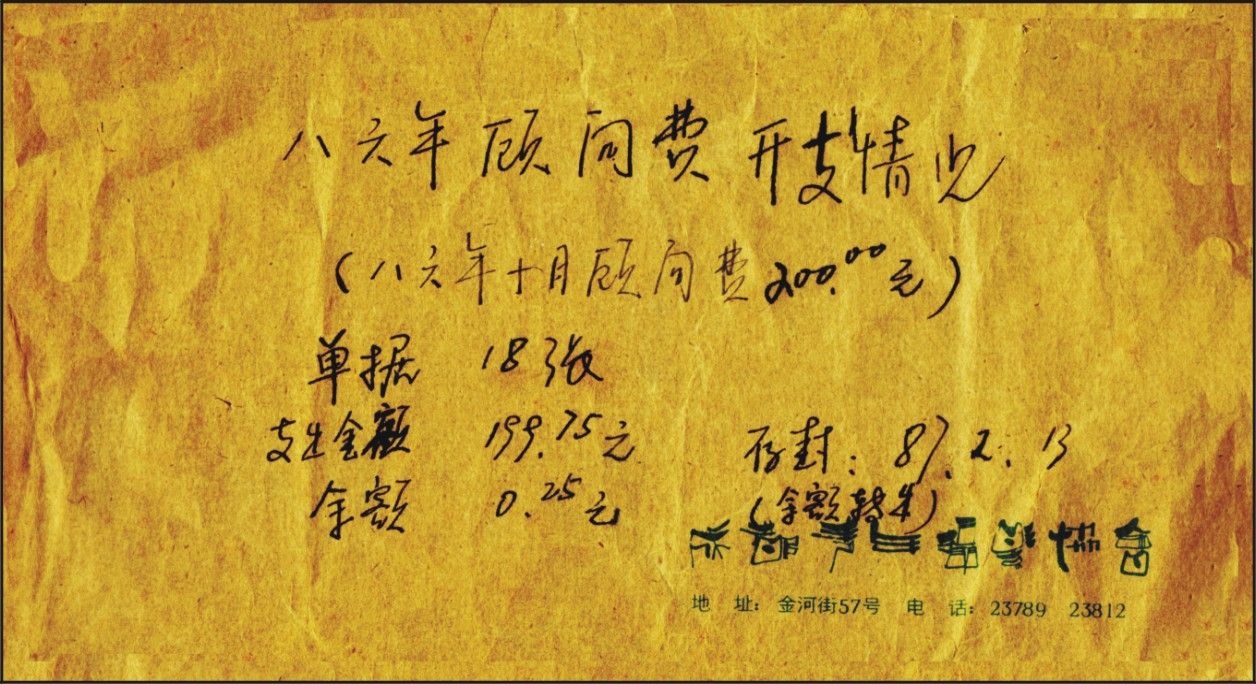 八六年顾问费开支情况
(八六年十月顾问费200.00元)
单据 18张
支出金额 199.75元
余额 0.25元
存封: 87.2.13
(余额转)
協會
地 址: 金河街57号 电 话: 23789 23812